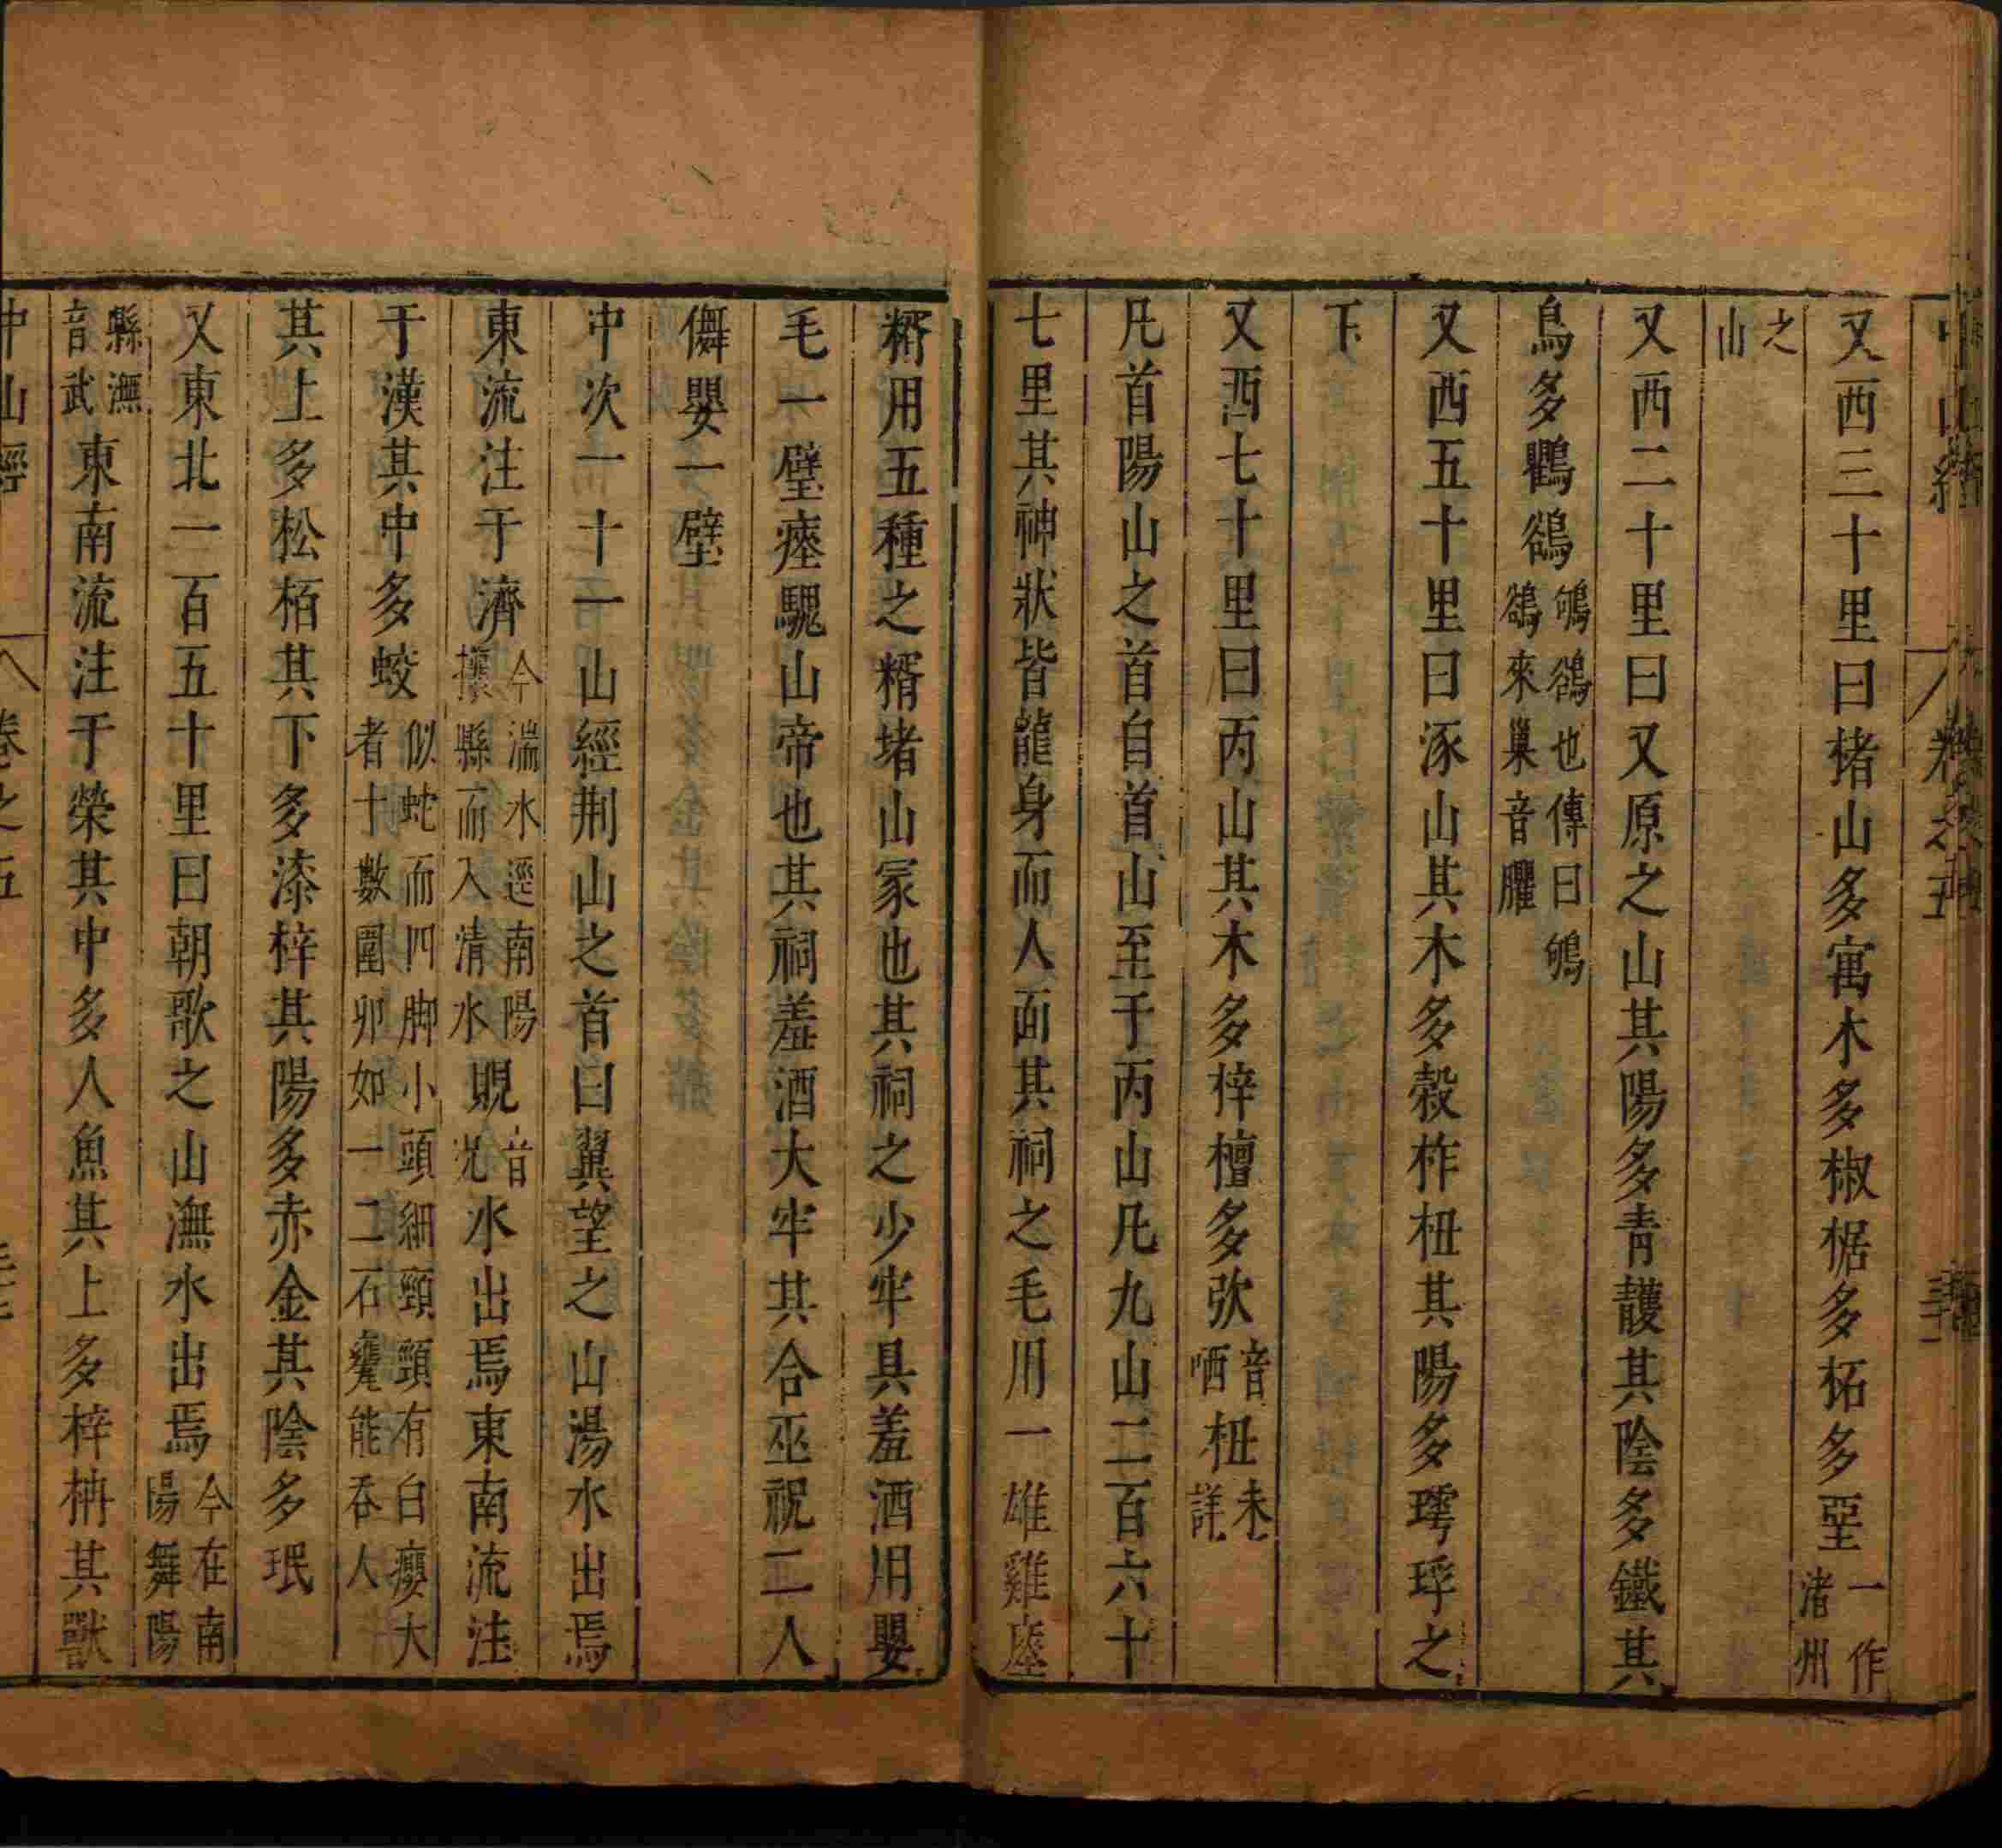 又西三十里曰楮山多寓木多椒椐多柘多堊一作渚州
之山
又西二十里曰又原之山其陽多青雘其陰多鐵其
鳥多鸜鵒鴝鵒也傳曰鴝鵒來巢音臞
又西五十里曰涿山其木多榖柞杻其陽多㻬琈之
下
又西七十里曰丙山其木多梓檀多弞音哂杻未詳
凡首陽山之首自首山至于丙山凡九山二百六十
七里其神狀皆龍身而人面其祠之毛用一雄雞瘞
糈用五種之糈堵山冢也其祠之少牢具羞酒用嬰
毛一璧瘞騩山帝也其祠羞酒大牢其合巫祝二人
儛嬰一璧
中次一十一山經荆山之首曰翼望之山湯水出焉
東流注于濟今湍水逕南陽攘縣而入清水貺音况水出焉東南流注
于漢其中多蛟似蛇而四脚小頭細頸頸有白癭大者十數圍卵如一二石甕能吞人
其上多松栢其下多漆梓其陽多赤金其陰多珉
又東北一百五十里曰朝歌之山潕水出焉今在南陽舞陽
縣潕音武東南流注于榮其中多人魚其上多梓枬其獸
中山經 卷之五